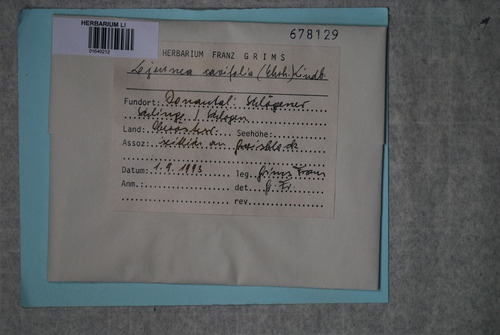 HERBARIUM LI
01640212
678129
HERBARIUM FRANZ GRIMS
Lejeunea cavifolia (Ehrh.) Lindb.
Fundort: Donautal: Schlögener
Schlinge / Schlögen
Land: Seehöhe:
Assoz: an
Datum: 1.9.1993 leg. Grims Franz
Anm.: det. G. Fr.
rev.